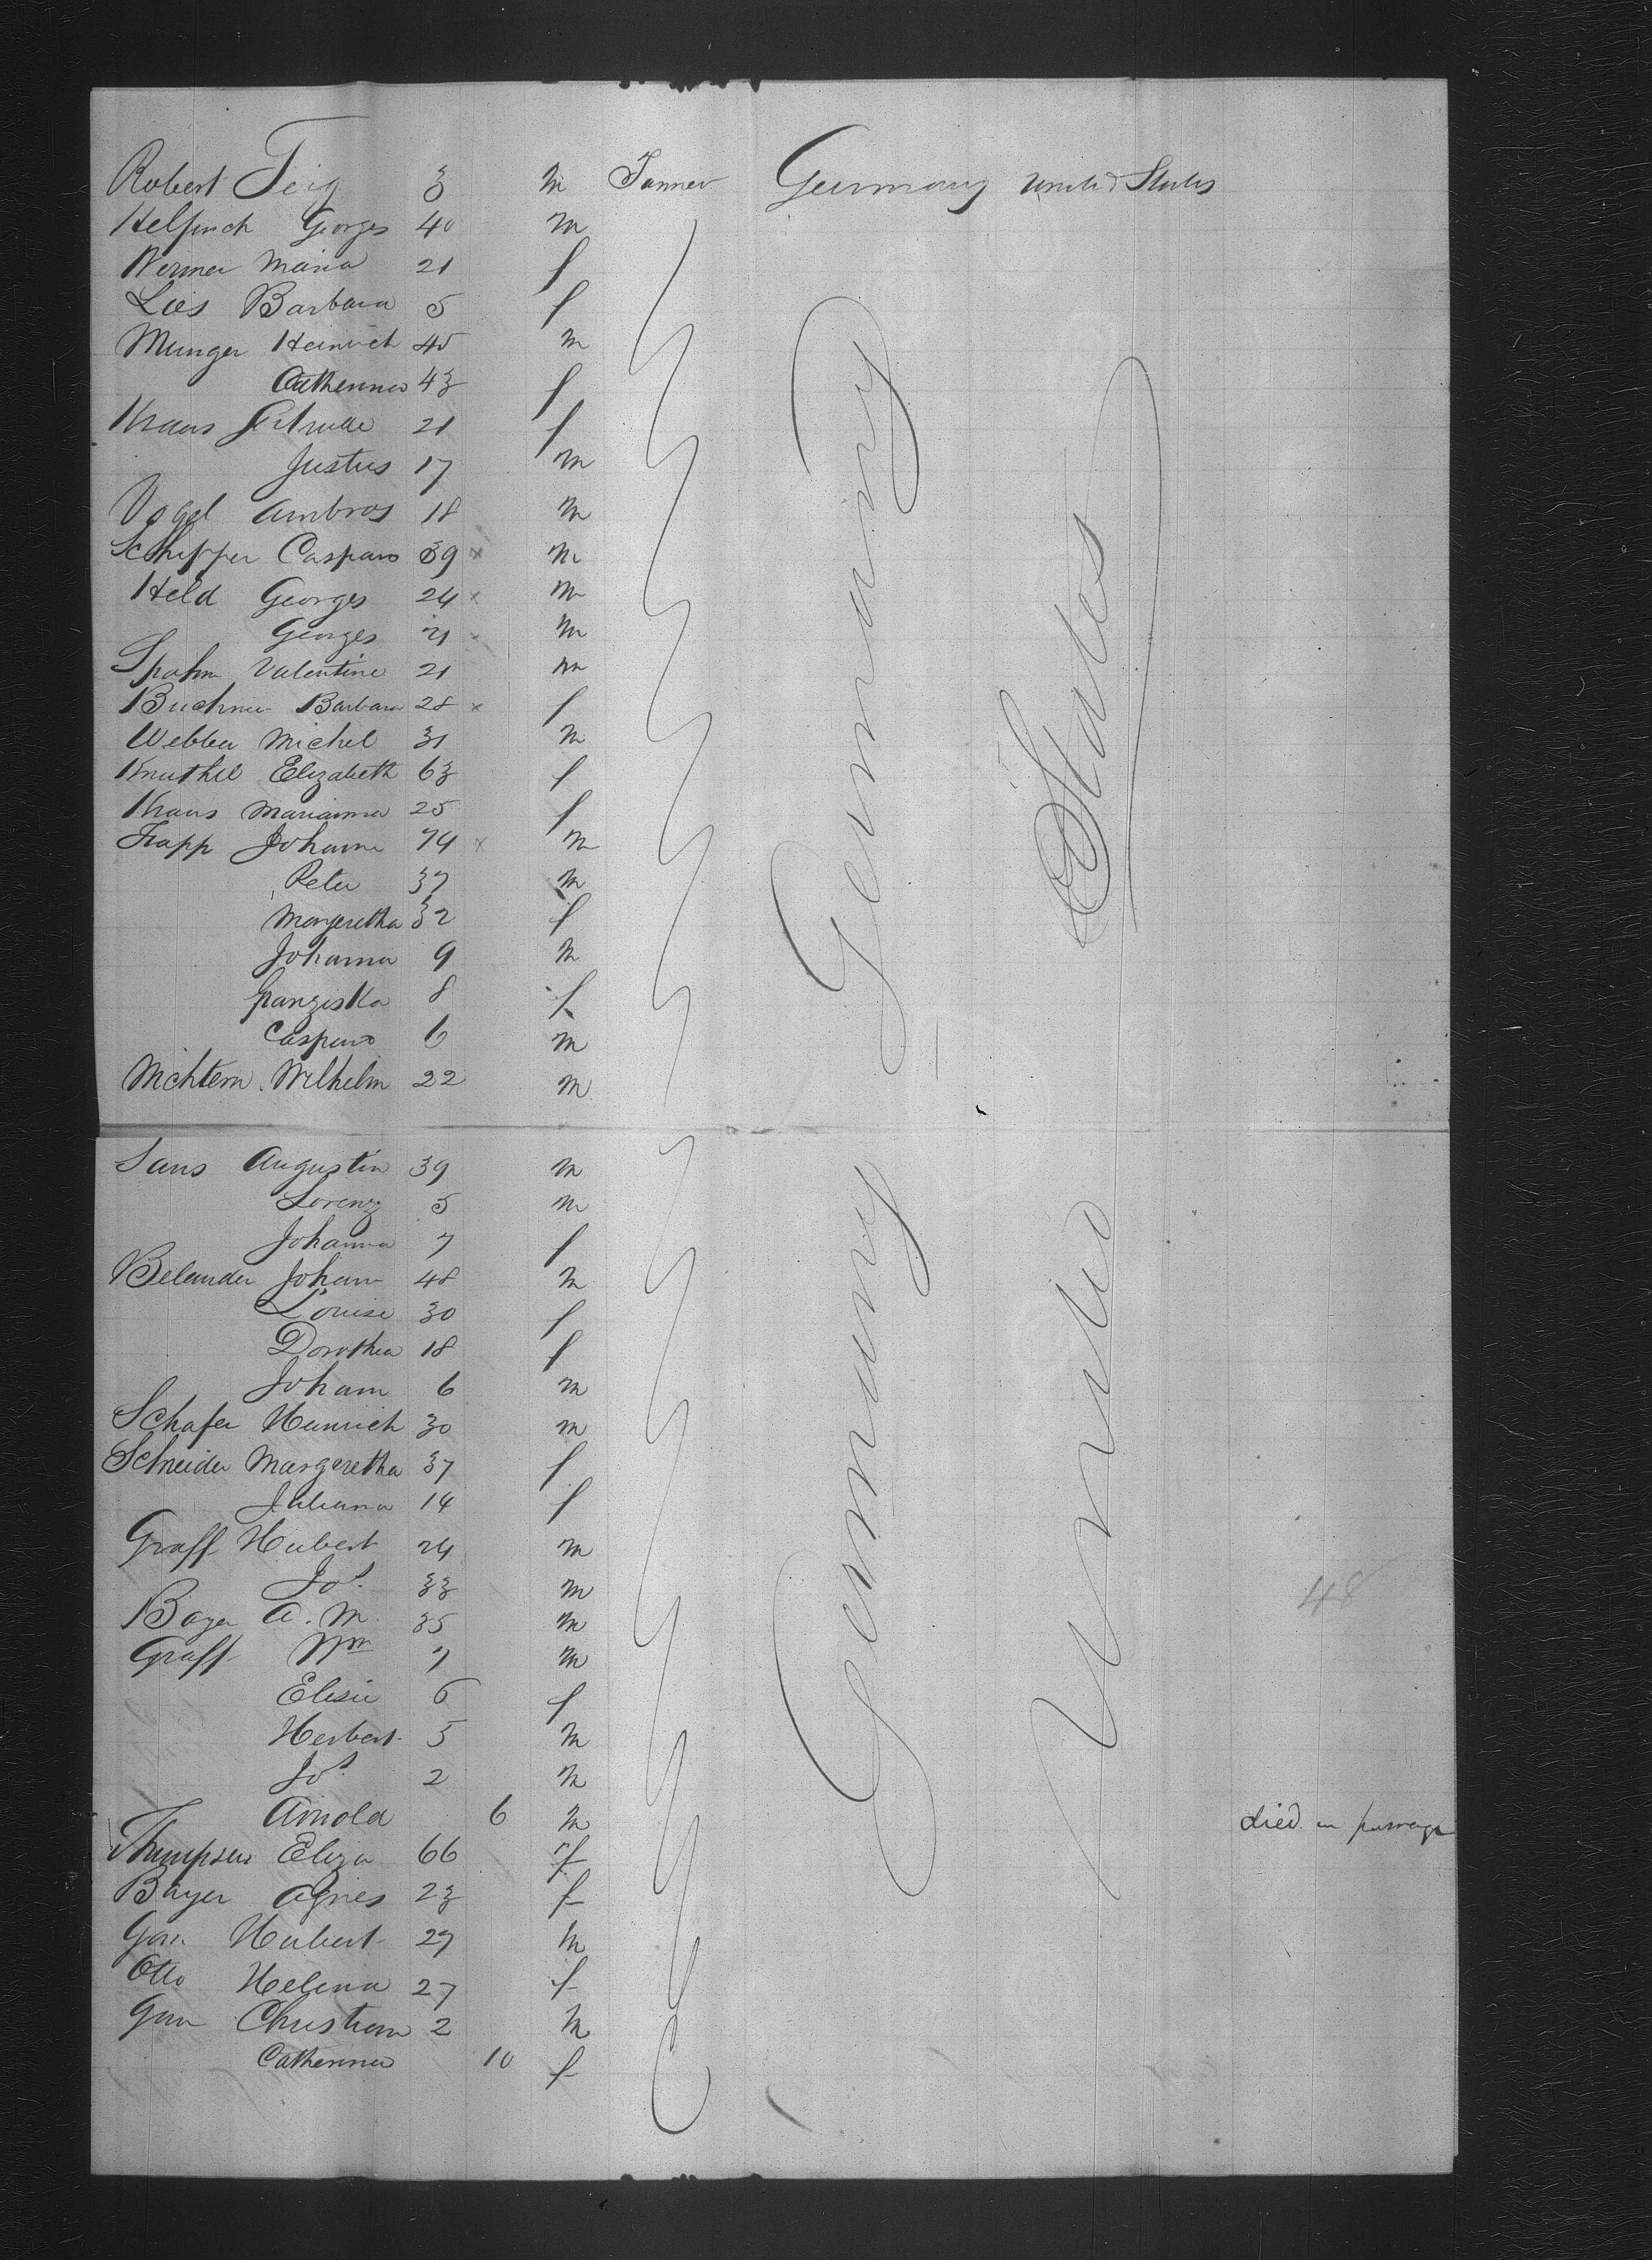 Robert Feig 3 m Farmer Germany United States
Helfinch Georges 40 m
Werner Maria 21 f
Lois Barbara 5 f
Munger Heinrich 45 m
Catherina 43 f
Kraus Gertrude 21 f
Justus 17 m
Vogel Ambros 18 m
Schipper Caspar 39 x m
Held Georges 24 x m
Georges 21 x m
Spahn Valentine 21 m
Buchner Barbara 28 x f
Webber Michel 31 m
Knuthel Elizabeth 63 f
Kraus Marianna 25 f
Trapp Johann 74 x m
Peter 37 m
Margeretha 32 f
Johann 9 m
Franziska 8 f
Caspar 6 m
Wilhelm 22 m
Germany
States
Sans Augustin 39 m
Lorenz 5 m
Johanna 7 f
Belander Johann 48 m
Louise 30 f
Dorothea 18 f
Johann 6 m
Schafer Heinrich 30 m
Schneider Margeretha 37 f
Juliana 14 f
Graff Hubert 24 m
Jos. 33 m
48
Bayer A. M. 35 m
Graff Wm 7 m
Elisie 6 f
Herbert 5 m
Jos. 2 m
Arnold 6 m died on passage
Thumpsen Eliza 66 f
Bayer Agnes 23 f
Hubert 27 m
Otto Helena 27 f
Christian 2 m
Catherina 10 f
Germany
United